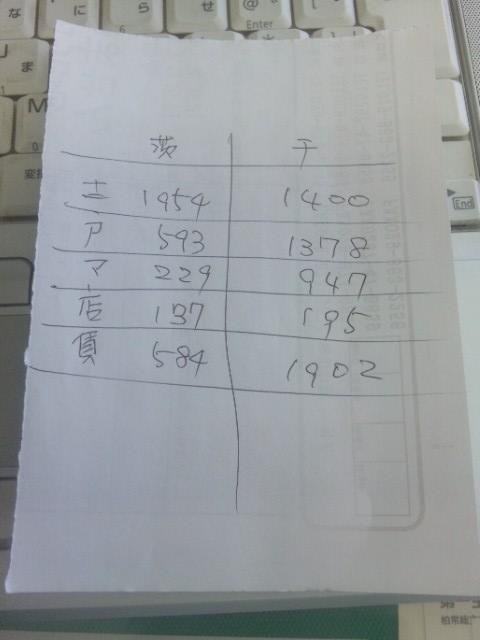 茨 千
土 1954 1400
戸 593 1378
マ 229 947
店 137 195
賃 584 1902
な に ら せ @
Enter
ま
M
End